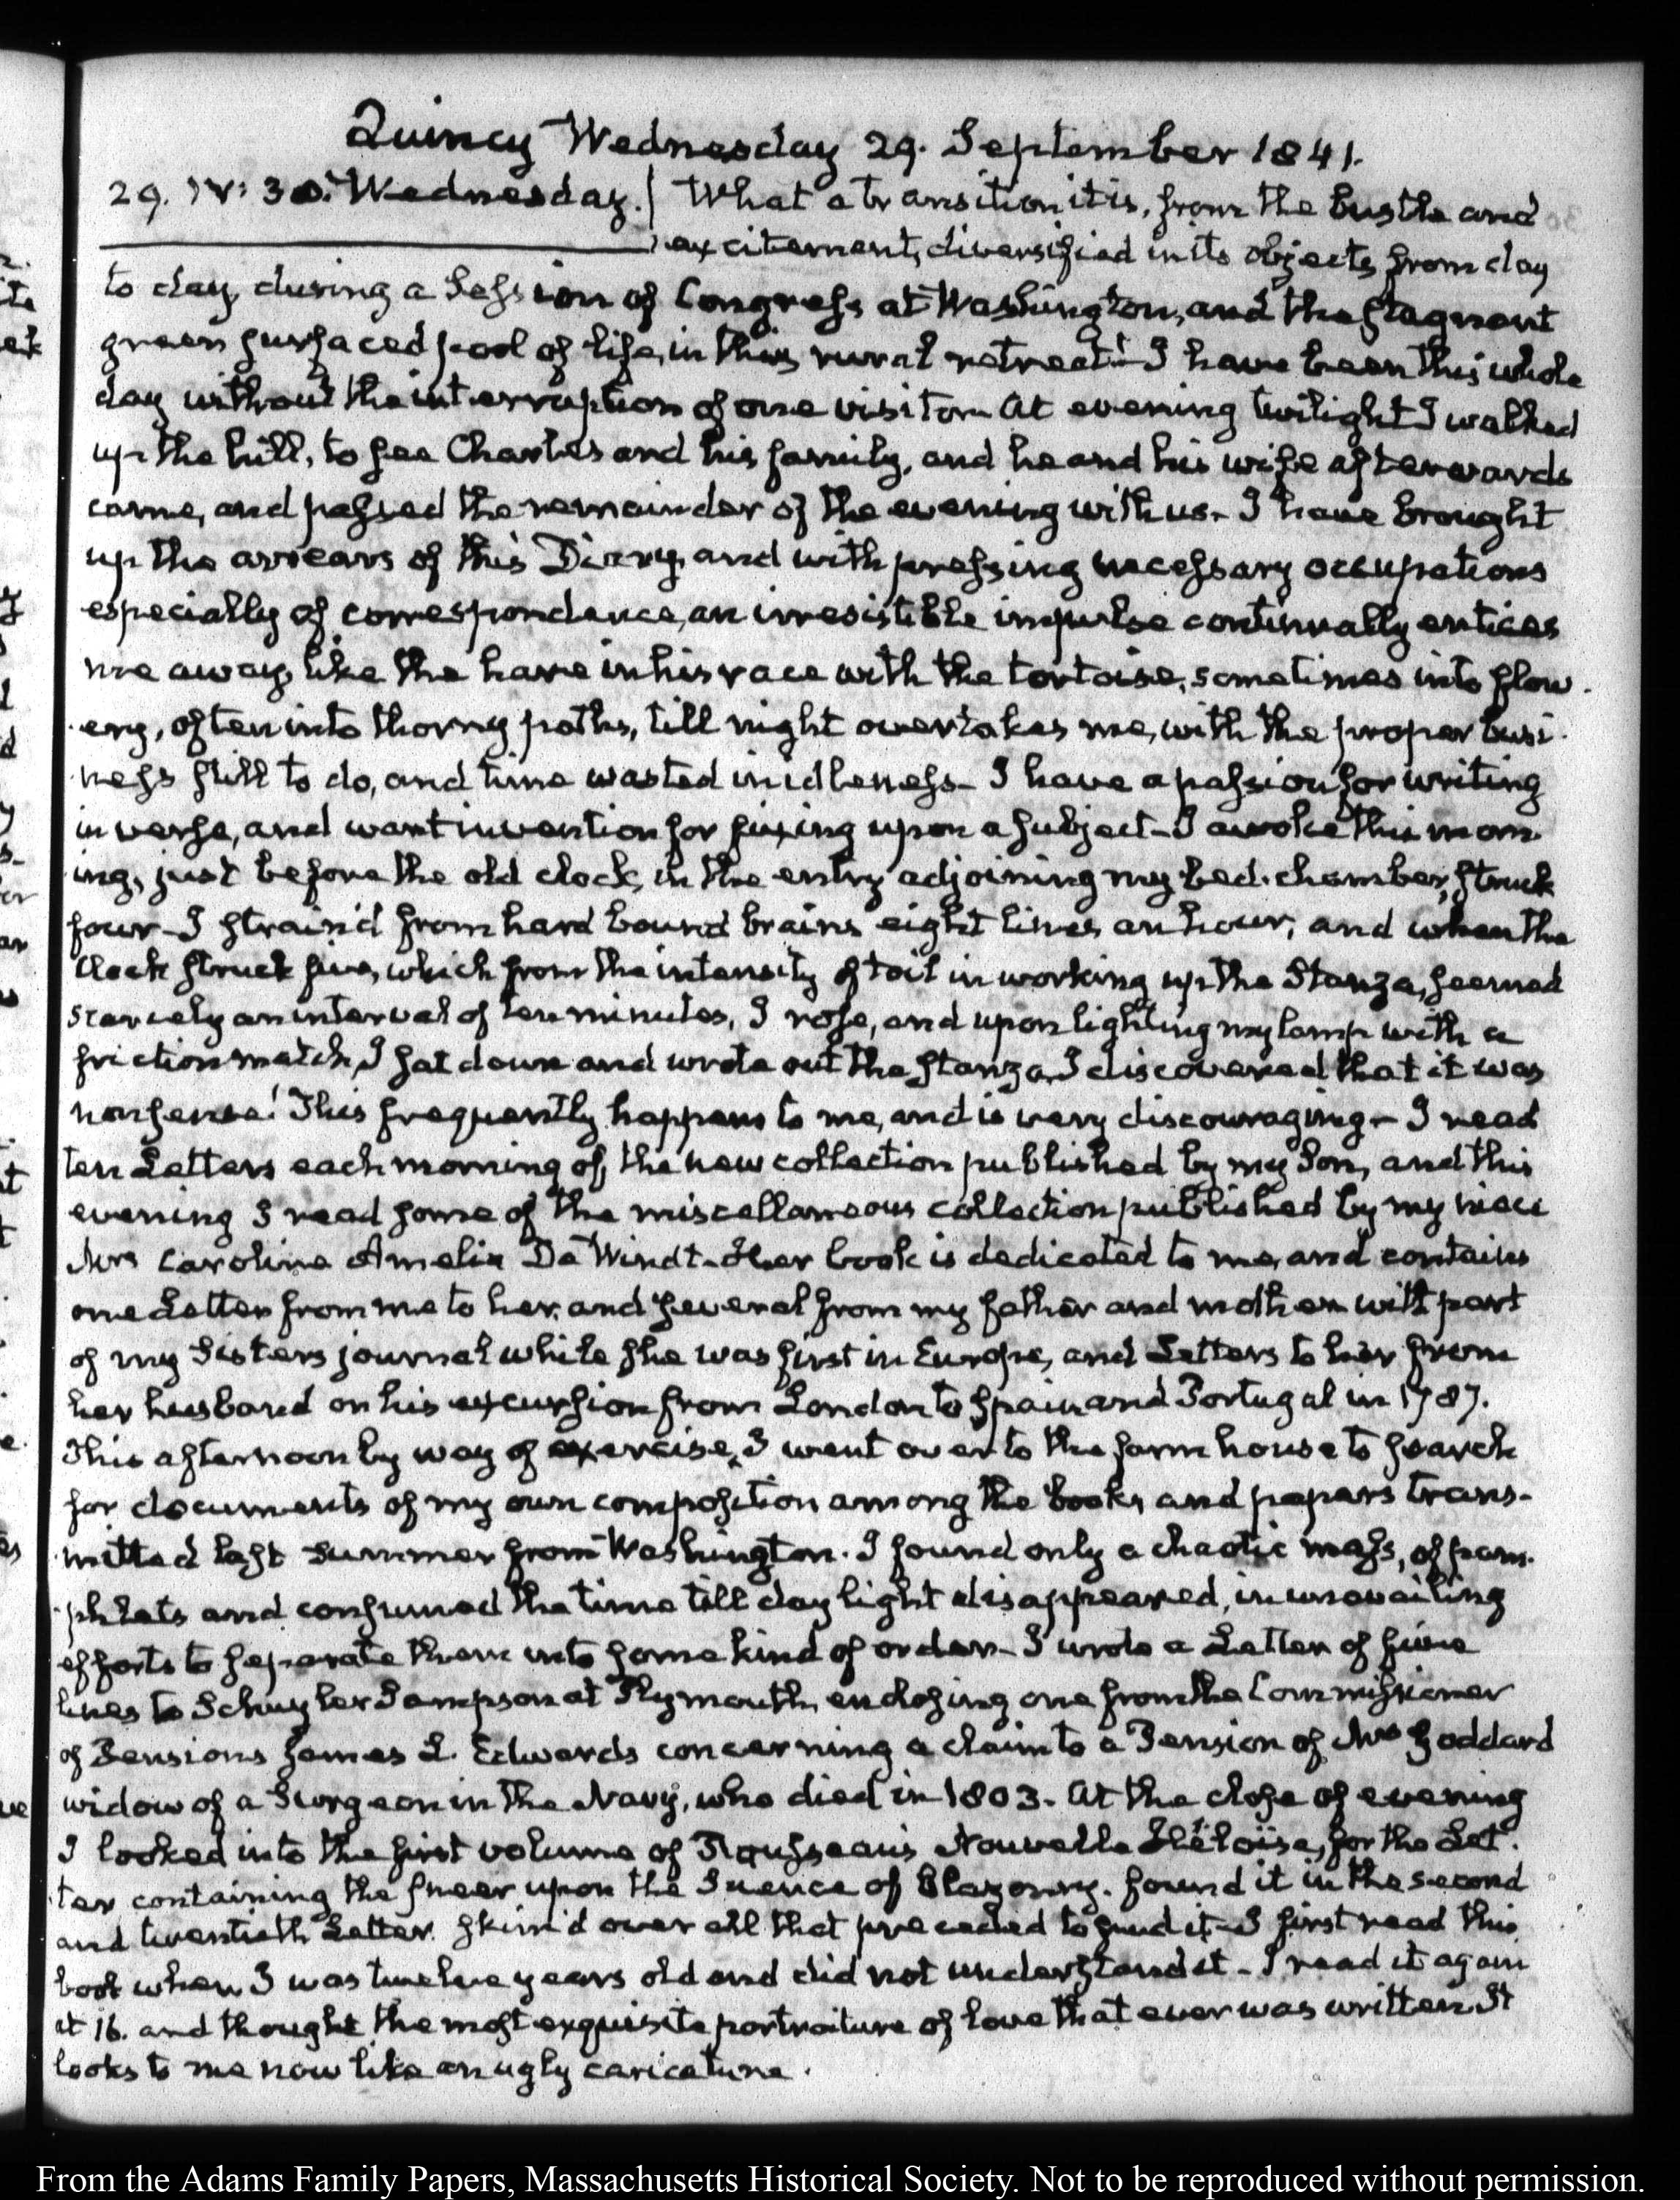 Quincy Wednesday 29. September 1841.
29. IV: 30. Wednesday. | What a transition it is, from the bustle and
excitement, diversified in its objects from day
to day, during a Session of Congress at Washington, and the stagnant
green surfaced pool of life, in this rural retreat!— I have been this whole
day without the interruption of one visitor— At evening twilight I walked
up the hill, to see Charles and his family, and he and his wife afterwards
came, and passed the remainder of the evening with us— I have brought
up the arrears of this Diary, and with pressing necessary occupations
especially of correspondence, an irresistible impulse continually entices
me away, like the hare in his race with the tortoise, sometimes into flow-
ery, often into thorny paths, till night overtakes me, with the proper busi-
ness still to do, and time wasted in idleness— I have a passion for writing
in verse, and want invention for fixing upon a subject— I awoke this morn-
ing, just before the old clock, in the entry adjoining my bed-chamber, struck
four— I strain'd from hard bound brains eight lines an hour, and when the
Clock struck five, which from the intensity of toil in working up the Stanza, seemed
scarcely an interval of ten minutes, I rose, and upon lighting my lamp with a
friction match, I sat down and wrote out the stanza, I discovered that it was
nonsense! This frequently happens to me, and is very discouraging— I read
ten Letters each morning of the new collection published by my Son, and this
evening I read some of the miscellaneous collection published by my niece
Mrs Caroline Amelia De Windt— Her book is dedicated to me, and contains
one Letter from me to her, and several from my father and mother with part
of my Sisters journal while she was first in Europe, and Letters to her from
her husband on his excursion from London to Spain and Portugal in 1787.
This afternoon by way of exercise, I went over to the farm house to search
for documents of my own composition among the books and papers trans-
mitted last summer from Washington. I found only a chaotic mass, of pam-
phlets and consumed the time till day light disappeared, in unavailing
efforts to separate them into some kind of order— I wrote a Letter of five
lines to Schuyler Sampson at Plymouth, enclosing one from the Commissioner
of Pensions James L. Edwards concerning a claim to a Pension of Mrs Goddard
widow of a Surgeon in the Navy, who died in 1803— At the close of evening
I looked into the first volume of Rousseau's Nouvelle Héloïse, for the Let-
ter containing the sneer upon the Science of Blazonry. found it in the second
and twentieth Letter. skim'd over all that preceded to find it— I first read this
book when I was twelve years old and did not understand it— I read it again
at 16. and thought the most exquisite portraiture of love that ever was written. It
looks to me now like an ugly caricature.
From the Adams Family Papers, Massachusetts Historical Society. Not to be reproduced without permission.